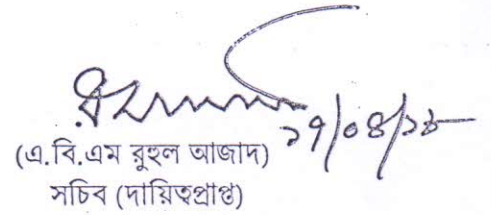 ১৭/০৪/১৮
(এ.বি.এম রুহুল আজাদ)
সচিব (দায়িত্বপ্রাপ্ত)